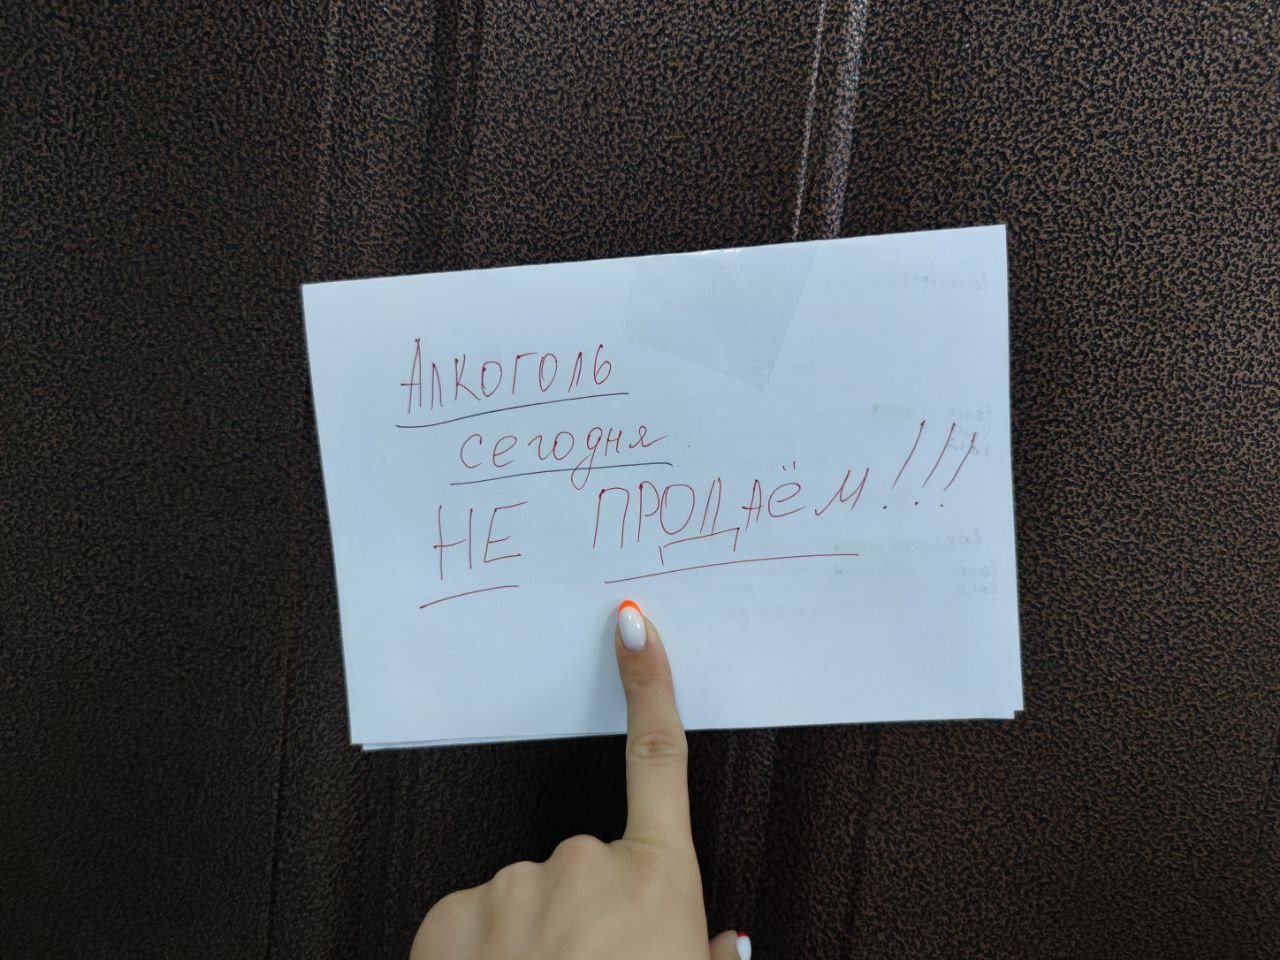 Алкоголь
сегодня
НЕ ПРОДАёМ!!!